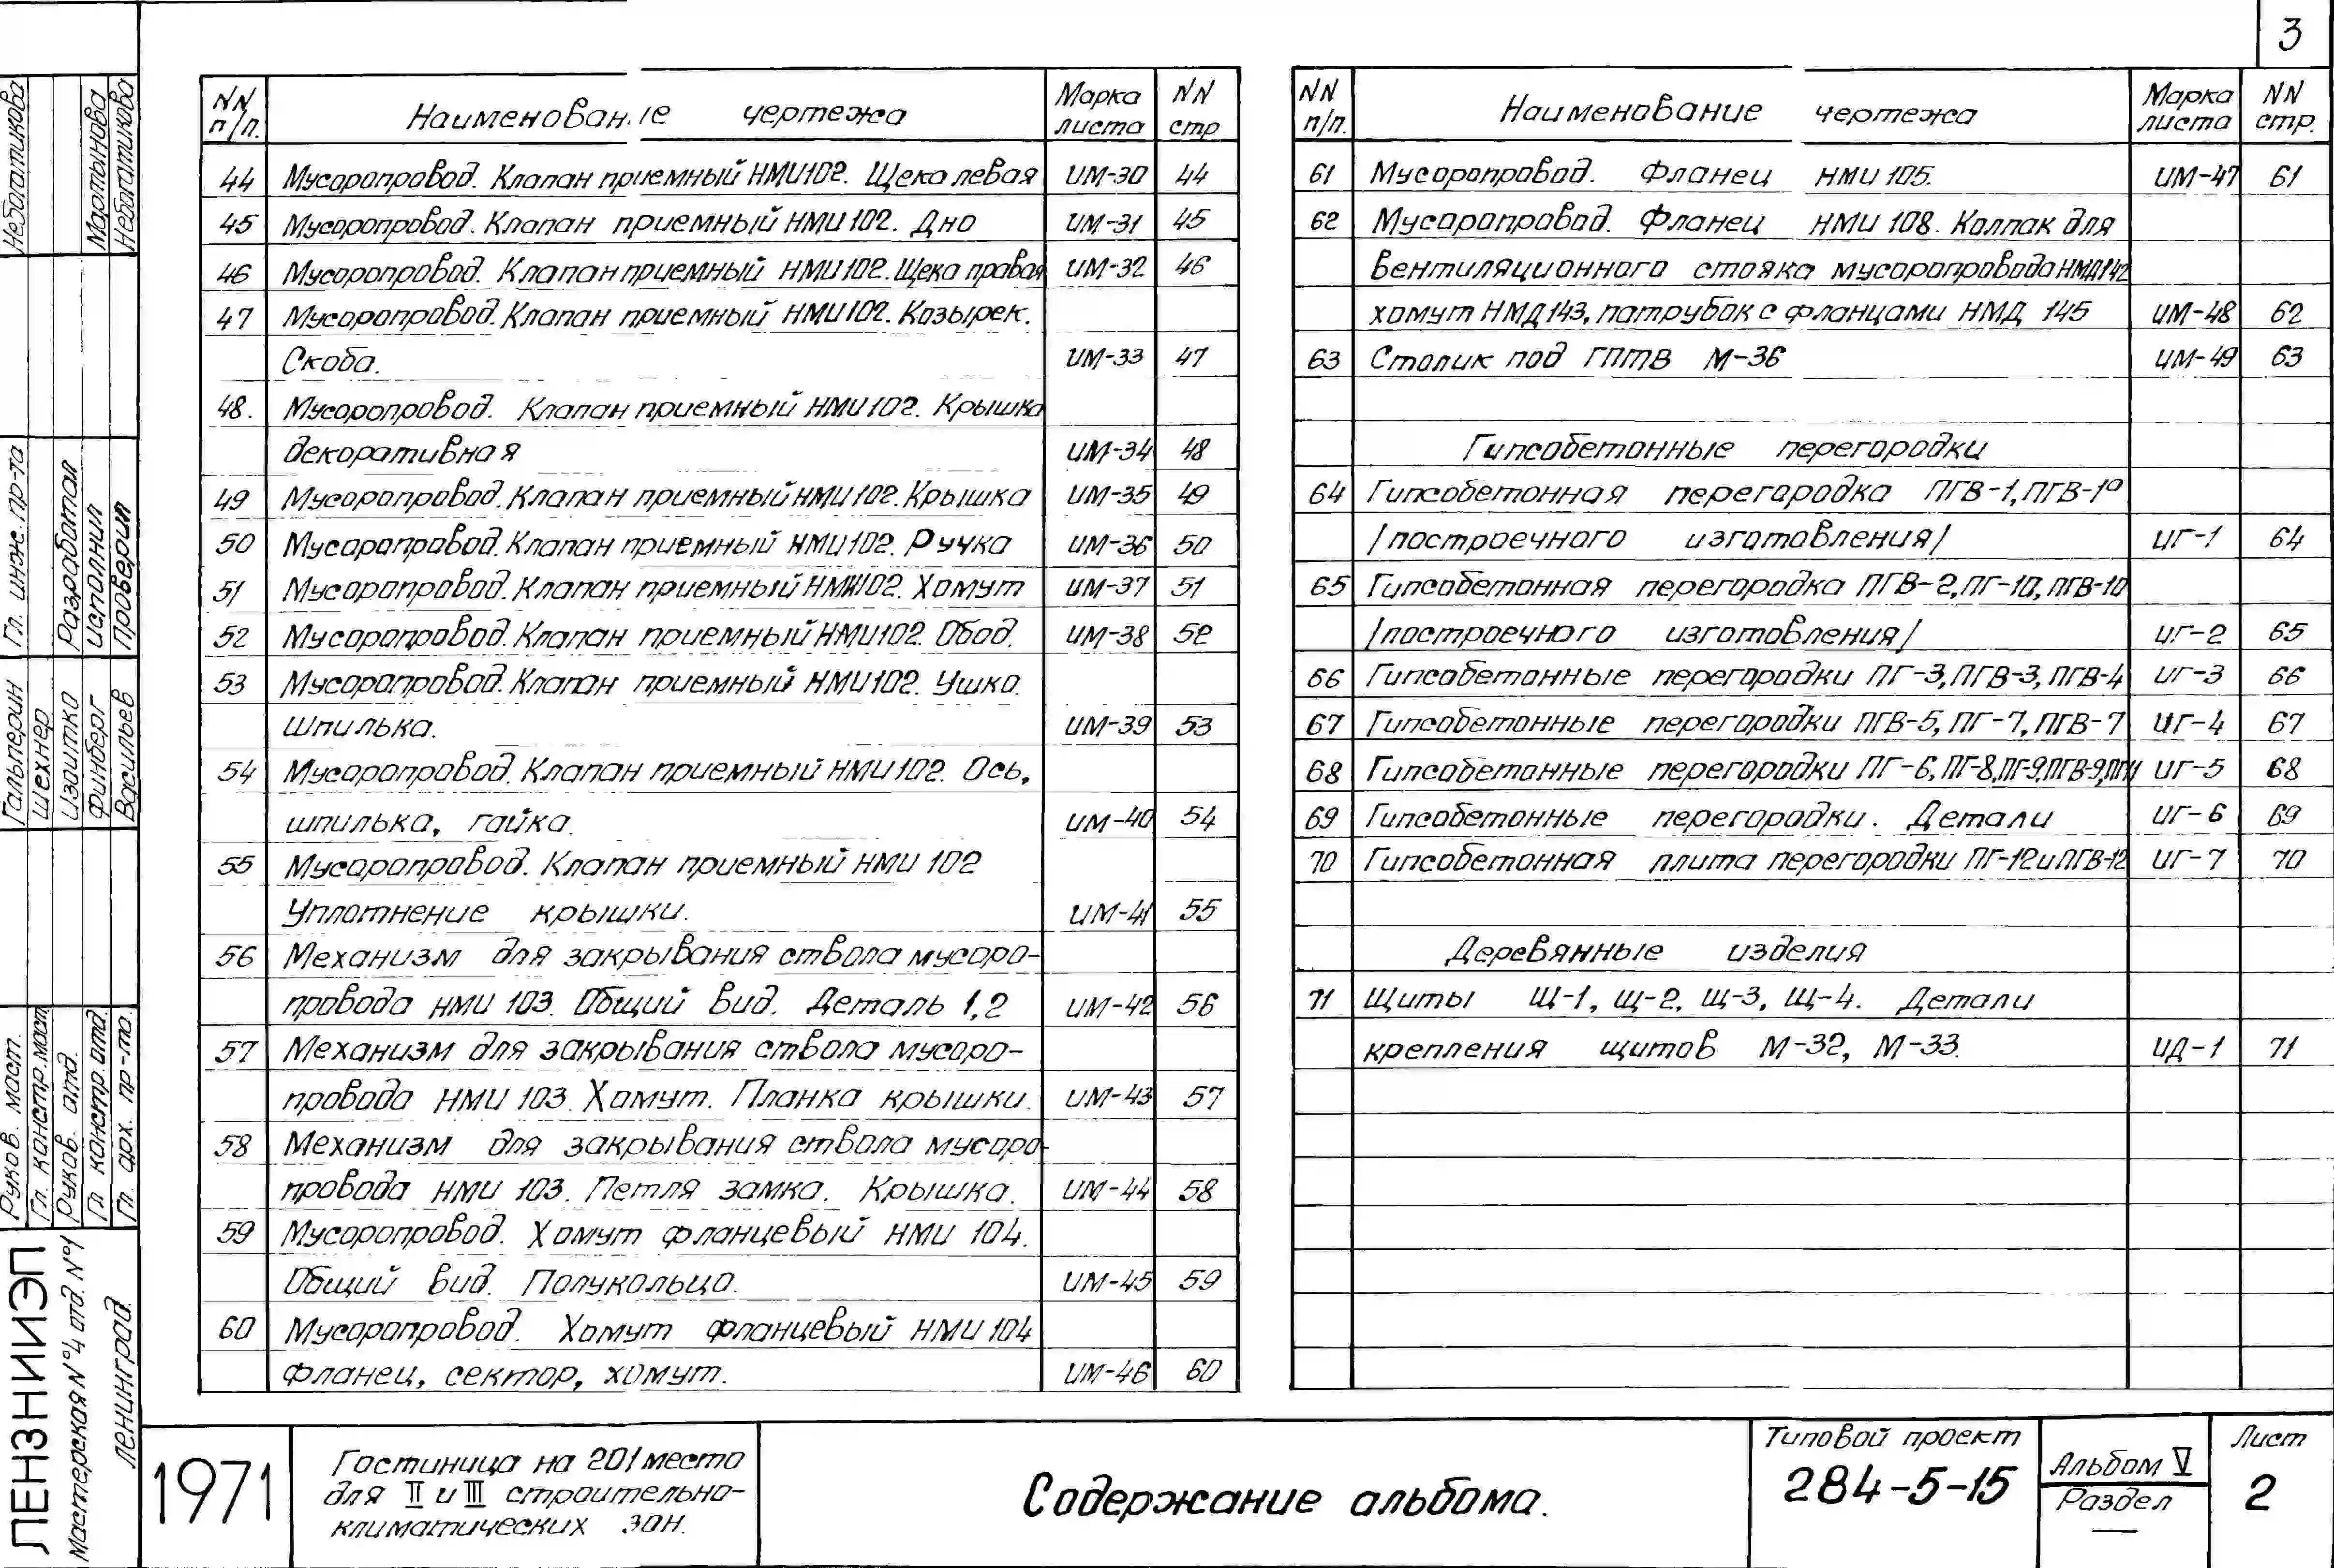 3
NN п/п. Наименование чертежа Марка листа NN стр
44 Мусоропровод. Клапан приемный НМИ102. Щека левая ИМ-30 44
45 Мусоропровод. Клапан приемный НМИ 102. Дно ИМ-31 45
46 Мусоропровод. Клапан приемный НМИ102. Щека правая ИМ-32 46
47 Мусоропровод. Клапан приемный НМИ102. Козырек.
Скоба. ИМ-33 47
48. Мусоропровод. Клапан приемный НМИ102. Крышка
декоративная ИМ-34 48
49 Мусоропровод. Клапан приемный НМИ102. Крышка ИМ-35 49
50 Мусоропровод. Клапан приемный НМИ102. Ручка ИМ-36 50
51 Мусоропровод. Клапан приемный НМИ102. Хомут ИМ-37 51
52 Мусоропровод. Клапан приемный НМИ102. Обод. ИМ-38 52
53 Мусоропровод. Клапан приемный НМИ102. Ушко.
шпилька. ИМ-39 53
54 Мусоропровод. Клапан приемный НМИ102. Ось,
шпилька, гайка. ИМ-40 54
55 Мусоропровод. Клапан приемный НМИ 102
Уплотнение крышки. ИМ-41 55
56 Механизм для закрывания ствола мусоро-
провода НМИ 103. Общий вид. Деталь 1,2 ИМ-42 56
57 Механизм для закрывания ствола мусоро-
провода НМИ 103. Хомут. Планка крышки. ИМ-43 57
58 Механизм для закрывания ствола мусоро-
провода НМИ 103. Петля замка. Крышка. ИМ-44 58
59 Мусоропровод. Хомут фланцевый НМИ 104.
Общий вид. Полукольцо. ИМ-45 59
60 Мусоропровод. Хомут фланцевый НМИ 104
фланец, сектор, хомут. ИМ-46 60
NN п/п. Наименование чертежа Марка листа NN стр.
61 Мусоропровод. Фланец НМИ 105. ИМ-47 61
62 Мусоропровод. Фланец НМИ 108. Колпак для
вентиляционного стояка мусоропровода НМД142
хомут НМД143, патрубок с фланцами НМД 145 ИМ-48 62
63 Столик под ГПТВ М-36 ИМ-49 63
Гипсобетонные перегородки
64 Гипсобетонная перегородка ПГВ-1, ПГВ-1а
/построечного изготовления/ ИГ-1 64
65 Гипсобетонная перегородка ПГВ-2, ПГ-10, ПГВ-10
/построечного изготовления/ ИГ-2 65
66 Гипсобетонные перегородки ПГ-3, ПГВ-3, ПГВ-4 ИГ-3 66
67 Гипсобетонные перегородки ПГВ-5, ПГ-7, ПГВ-7 ИГ-4 67
68 Гипсобетонные перегородки ПГ-6, ПГ-8, ПГ-9, ПГВ-9, ИГ-5 68
69 Гипсобетонные перегородки. Детали ИГ-6 69
70 Гипсобетонная плита перегородки ПГ-12 и ПГВ-12 ИГ-7 70
Деревянные изделия
71 Щиты Щ-1, Щ-2, Щ-3, Щ-4. Детали
крепления щитов М-32, М-33. ИД-1 71
Небогатикова
Мартынова
Небогатикова
Гл. инж. пр-та
Разработал
исполнил
Проверил
Гальперин
Шехнер
Изаитко
Финберг
Васильев
Руков. маст.
Гл. констр. маст
Руков. отд.
Гл. констр. отд.
Гл. арх. пр-та.
ЛЕНЗНИИЭП
Мастерская №4 отд. №1
ленинград.
1971
Гостиница на 201 место
для II и III строительно-
климатических зон.
Содержание альбома.
Типовой проект
284-5-15
Альбом V
Раздел
—
Лист
2